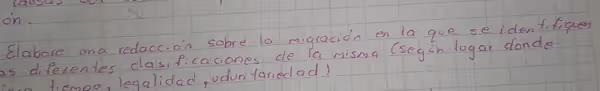 ón.
Elabore una redacción sobre la migración en la que se identifiquen
as diferentes clasificaciones de la misma (según lugar donde
tiempo, legalidad, voluntariedad)